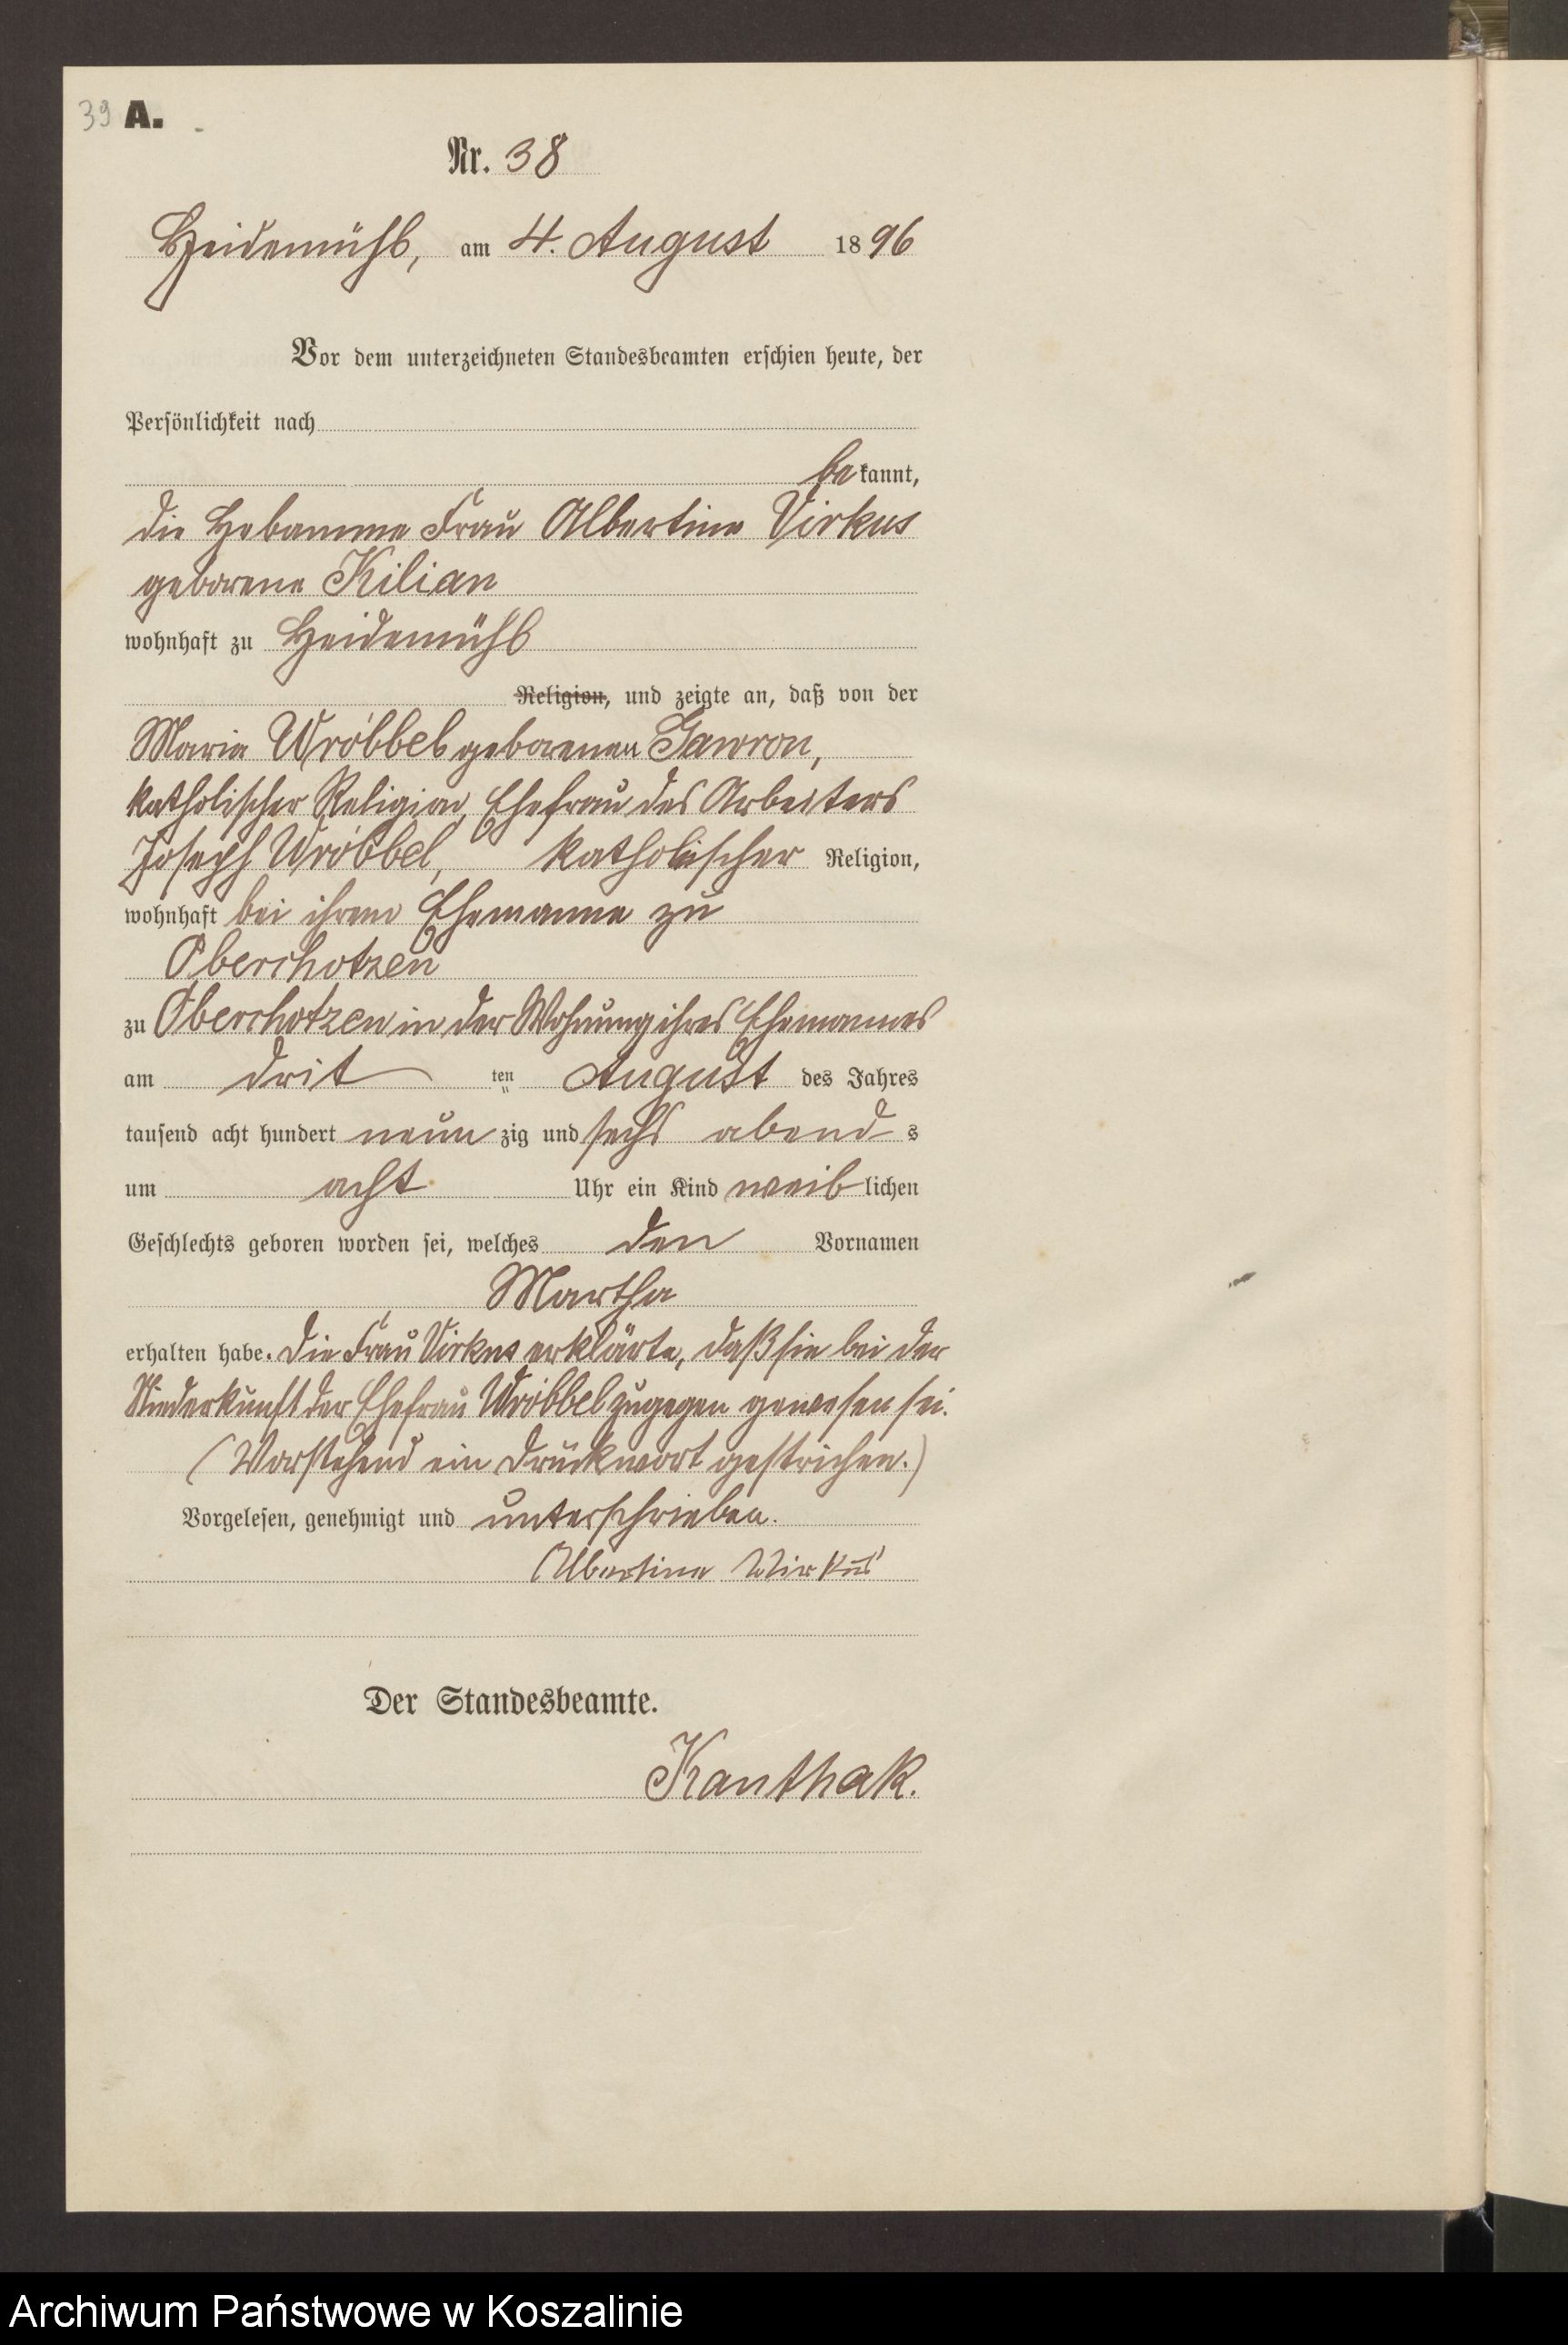 39 A.
Nr. 38
Heidemühl, am 4. August 1896
Vor dem unterzeichneten Standesbeamten erschien heute, der
Persönlichkeit nach
bekannt,
die Hebamme Frau Albertine Virkus
geborene Kilian
wohnhaft zu Heidemühl
Religion, und zeigte an, daß von der
Maria Wróbbel geborenen Gawron,
katholischer Religion, Ehefrau des Arbeiters
Joseph Wróbbel, katholischer Religion,
wohnhaft bei ihrem Ehemanne zu
Oberchotzen
zu Oberchotzen in der Wohnung ihres Ehemannes
am drit ten August des Jahres
tausend acht hundert neun zig und sechs abend s
um acht Uhr ein Kind weiblichen
Geschlechts geboren worden sei, welches den Vornamen
Martha
erhalten habe. Die Frau Virkus erklärte, daß sie bei der
Niederkunft der Ehefrau Wróbbel zugegen gewesen sei.
(Vorstehend ein Druckwort gestrichen.)
Vorgelesen, genehmigt und unterschrieben.
Albertine Wirkus
Der Standesbeamte.
Kanthak.
Archiwum Państwowe w Koszalinie